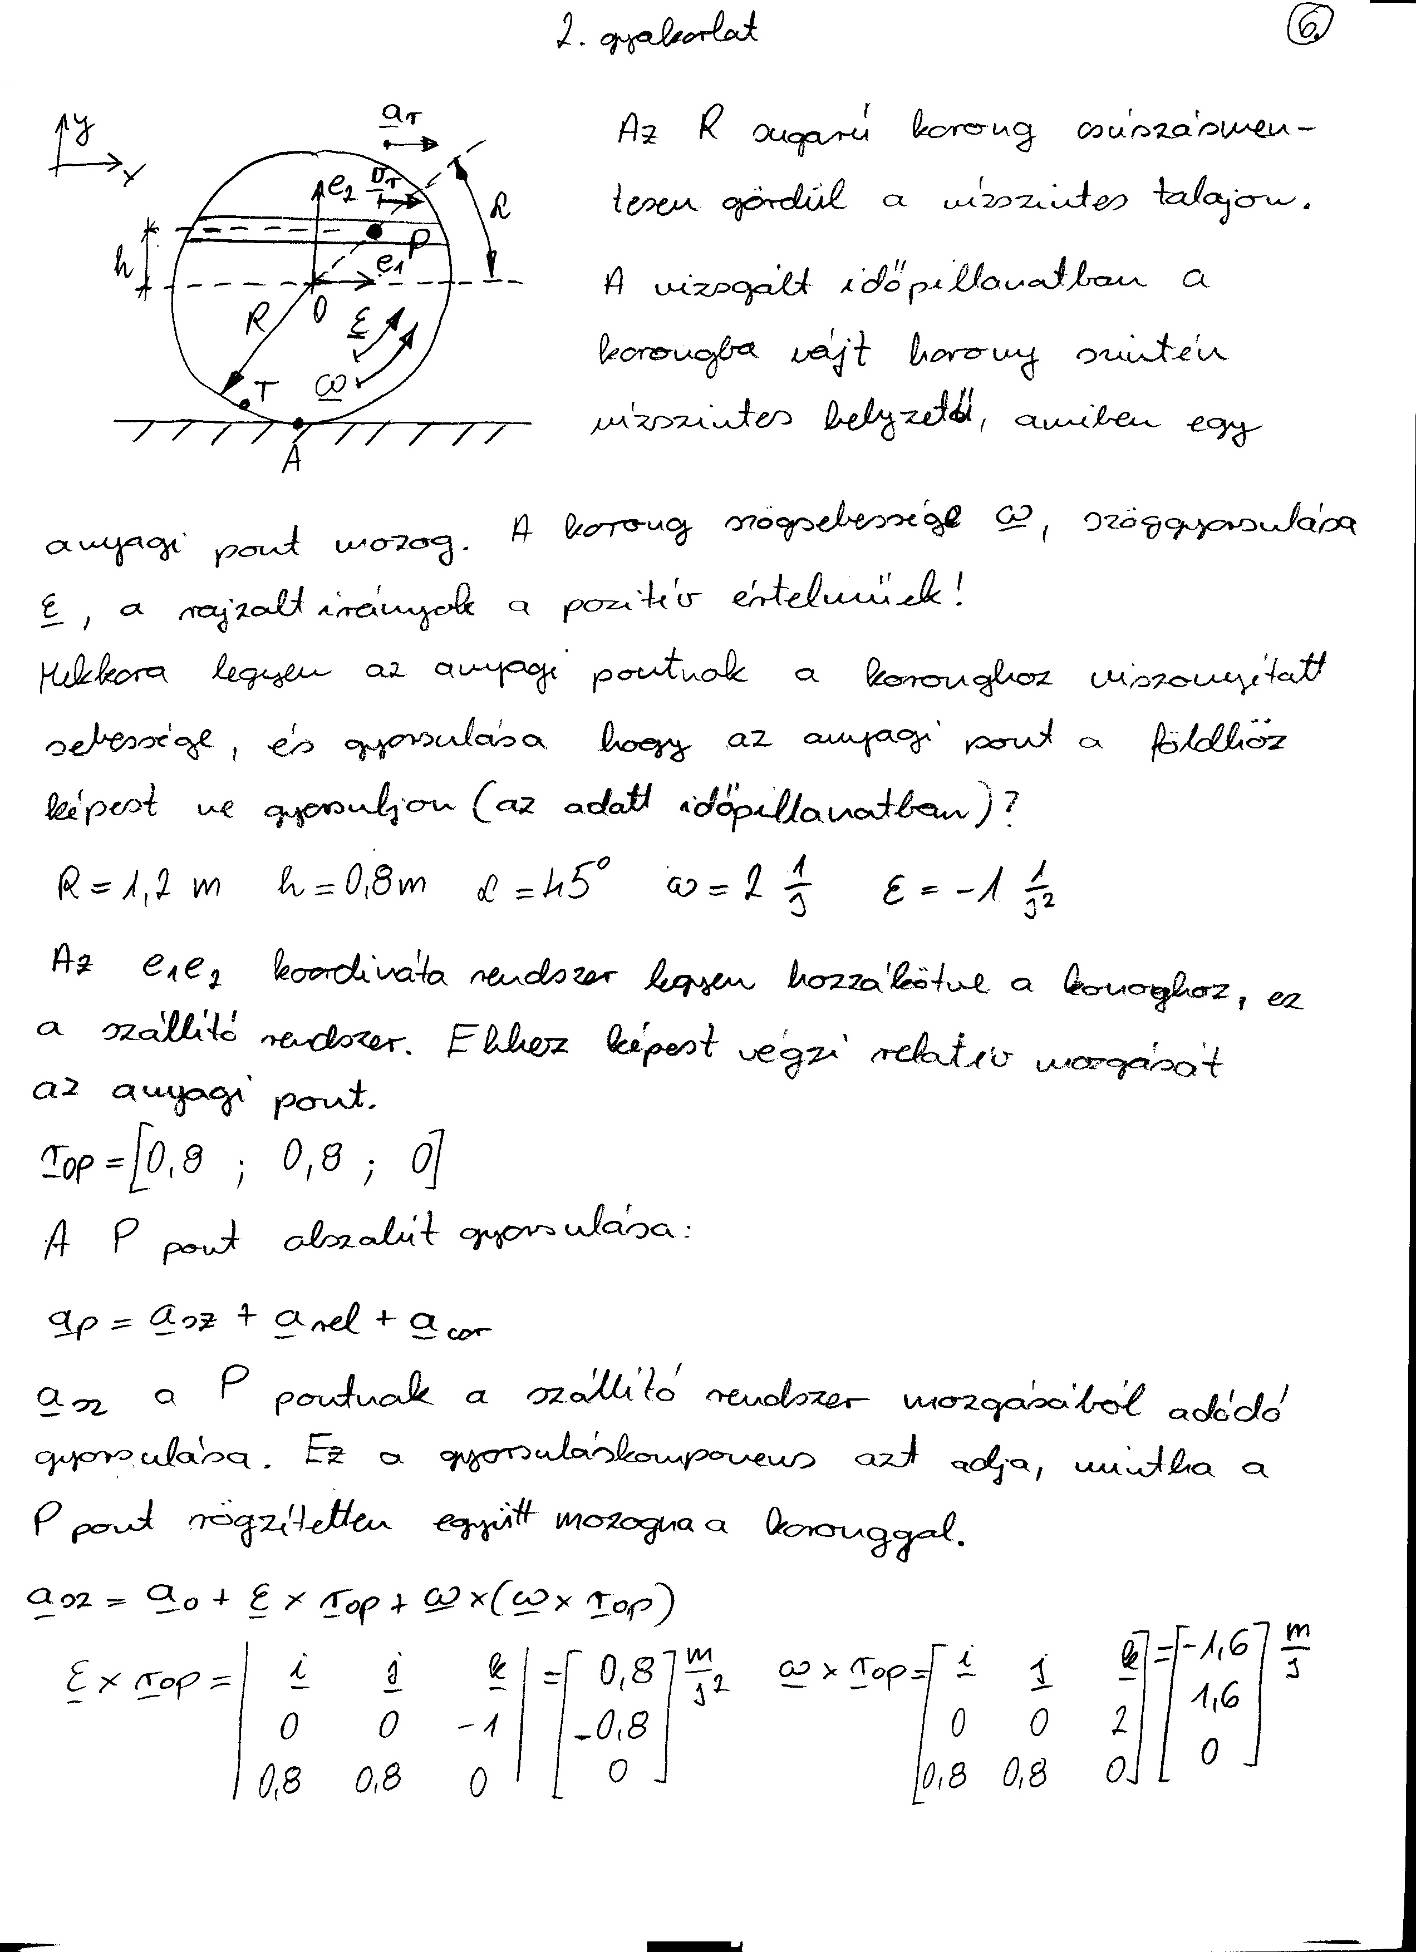 2. gyakorlat
6.
Az R sugarú korong csúszásmen-
tesen gördül a vízszintes talajon.
A vizsgált időpillanatban a
korongba vájt horony szintén
vízszintes helyzetű, amiben egy
y
x
a_r
v_r
e_2
e_1
P
α
h
R
0
ε
ω
T
A
anyagi pont mozog. A korong szögsebessége ω, szöggyorsulása
ε, a rajzolt irányok a pozitív értelműek!
Mekkora legyen az anyagi pontnak a koronghoz viszonyított
sebessége, és gyorsulása hogy az anyagi pont a földhöz
képest ne gyorsuljon (az adott időpillanatban)?
R = 1,2 m h = 0,8m α = 45° ω = 2 1/s ε = -1 1/s²
Az e_1e_2 koordináta rendszer legyen hozzákötve a koronghoz, ez
a szállító rendszer. Ehhez képest végzi relatív mozgását
az anyagi pont.
r_OP = [0,8 ; 0,8 ; 0]
A P pont abszolút gyorsulása:
a_P = a_sz + a_rel + a_cor
a_sz a P pontnak a szállító rendszer mozgásából adódó
gyorsulása. Ez a gyorsuláskomponens azt adja, mintha a
P pont rögzítetten együtt mozogna a koronggal.
a_sz = a_0 + ε × r_OP + ω × (ω × r_OP)
ε × r_OP = | i j k | = [ 0,8 ] m/s² ω × r_OP = [ i j k ] = [ -1,6 ] m/s
0 0 -1 -0,8 0 0 2 1,6
0,8 0,8 0 0 0,8 0,8 0 0